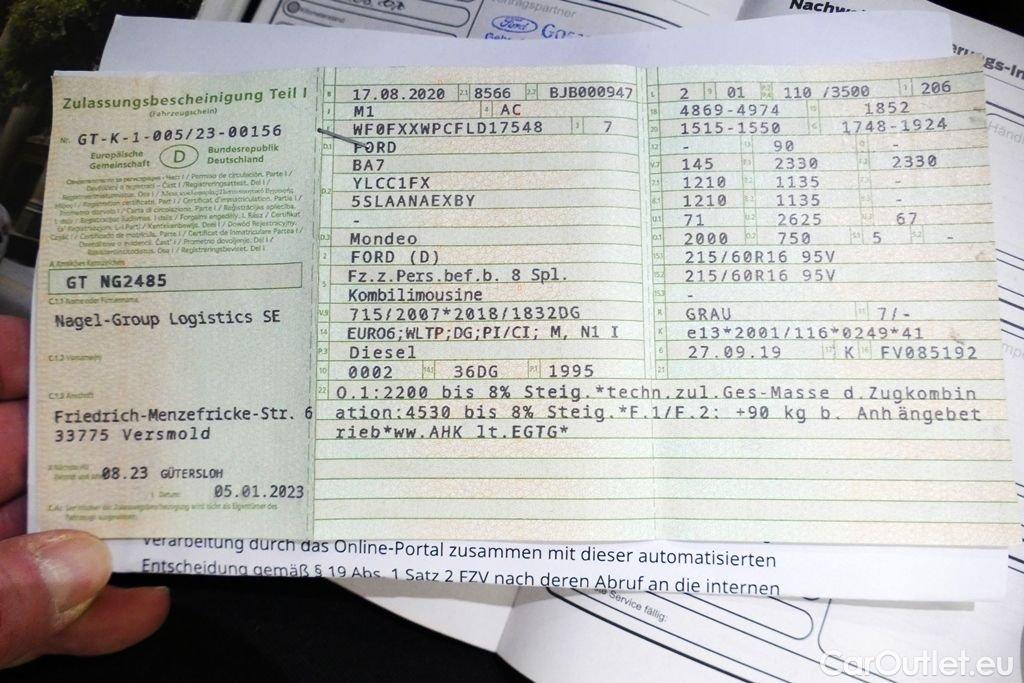 Nachw
rtragspartner
Ford
erungs-In
Zulassungsbescheinigung Teil I
(Fahrzeugschein)
Nr. GT-K-1-005/23-00156
Europäische Gemeinschaft
D
Bundesrepublik Deutschland
A Amtliches Kennzeichen
GT NG2485
C.1.1 Name oder Firmenname
Nagel-Group Logistics SE
C.1.2 Vorname(n)
C.1.3 Anschrift
Friedrich-Menzefricke-Str. 6
33775 Versmold
08.23 GÜTERSLOH
I Datum: 05.01.2023
B 17.08.2020 2.1 8566 2.2 BJB000947
J M1 4 AC
E WF0FXXWPCFLD17548 3 7
D.1 FORD
BA7
D.2 YLCC1FX
5SLAANAEXBY
-
D.3 Mondeo
2 FORD (D)
5 Fz.z.Pers.bef.b. 8 Spl.
Kombilimousine
V.9 715/2007*2018/1832DG
14 EURO6;WLTP;DG;PI/CI; M, N1 I
P.3 Diesel
10 0002 14.1 36DG P.1 1995
L 2 9 01 110 /3500 T 206
18 4869-4974 19 1852
20 1515-1550 G 1748-1924
12 - 13 90 -
V.7 145 F.1 2330 F.2 2330
7.1 1210 7.2 1135 -
8.1 1210 8.2 1135 -
U.1 71 U.2 2625 U.3 67
O.1 2000 O.2 750 S.1 5 S.2 -
15.1 215/60R16 95V
15.2 215/60R16 95V
15.3 -
R GRAU 11 7/-
K e13*2001/116*0249*41
6 27.09.19 17 K 16 FV085192
21
22 O.1:2200 bis 8% Steig.*techn.zul.Ges-Masse d.Zugkombin
ation:4530 bis 8% Steig.*F.1/F.2: +90 kg b. Anhängebet
rieb*ww.AHK lt.EGTG*
Verarbeitung durch das Online-Portal zusammen mit dieser automatisierten
Entscheidung gemäß § 19 Abs. 1 Satz 2 FZV nach deren Abruf an die internen
Service fällig:
CarOutlet.eu